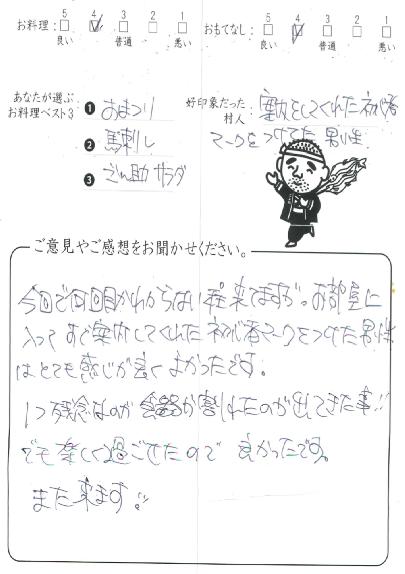 お料理： 5 4 3 2 1
良い 普通 悪い
おもてなし： 5 4 3 2 1
良い 普通 悪い
あなたが選ぶ
お料理ベスト3
❶ おまつり
❷ 馬刺し
❸ ざん助 サラダ
好印象だった
村人：
案内をしてくれた初心者
マークをつけてた 男性
ご意見やご感想をお聞かせください。
今回で何回目かわからない程来てますが。お部屋に
入って すぐ案内してくれた 初心者マークをつけた男性
はとても感じが良くよかったです。
1つ残念なのが 食器が割れたのが出てきた事!!
でも楽しく過ごせたので 良かったです。
また来ます!!